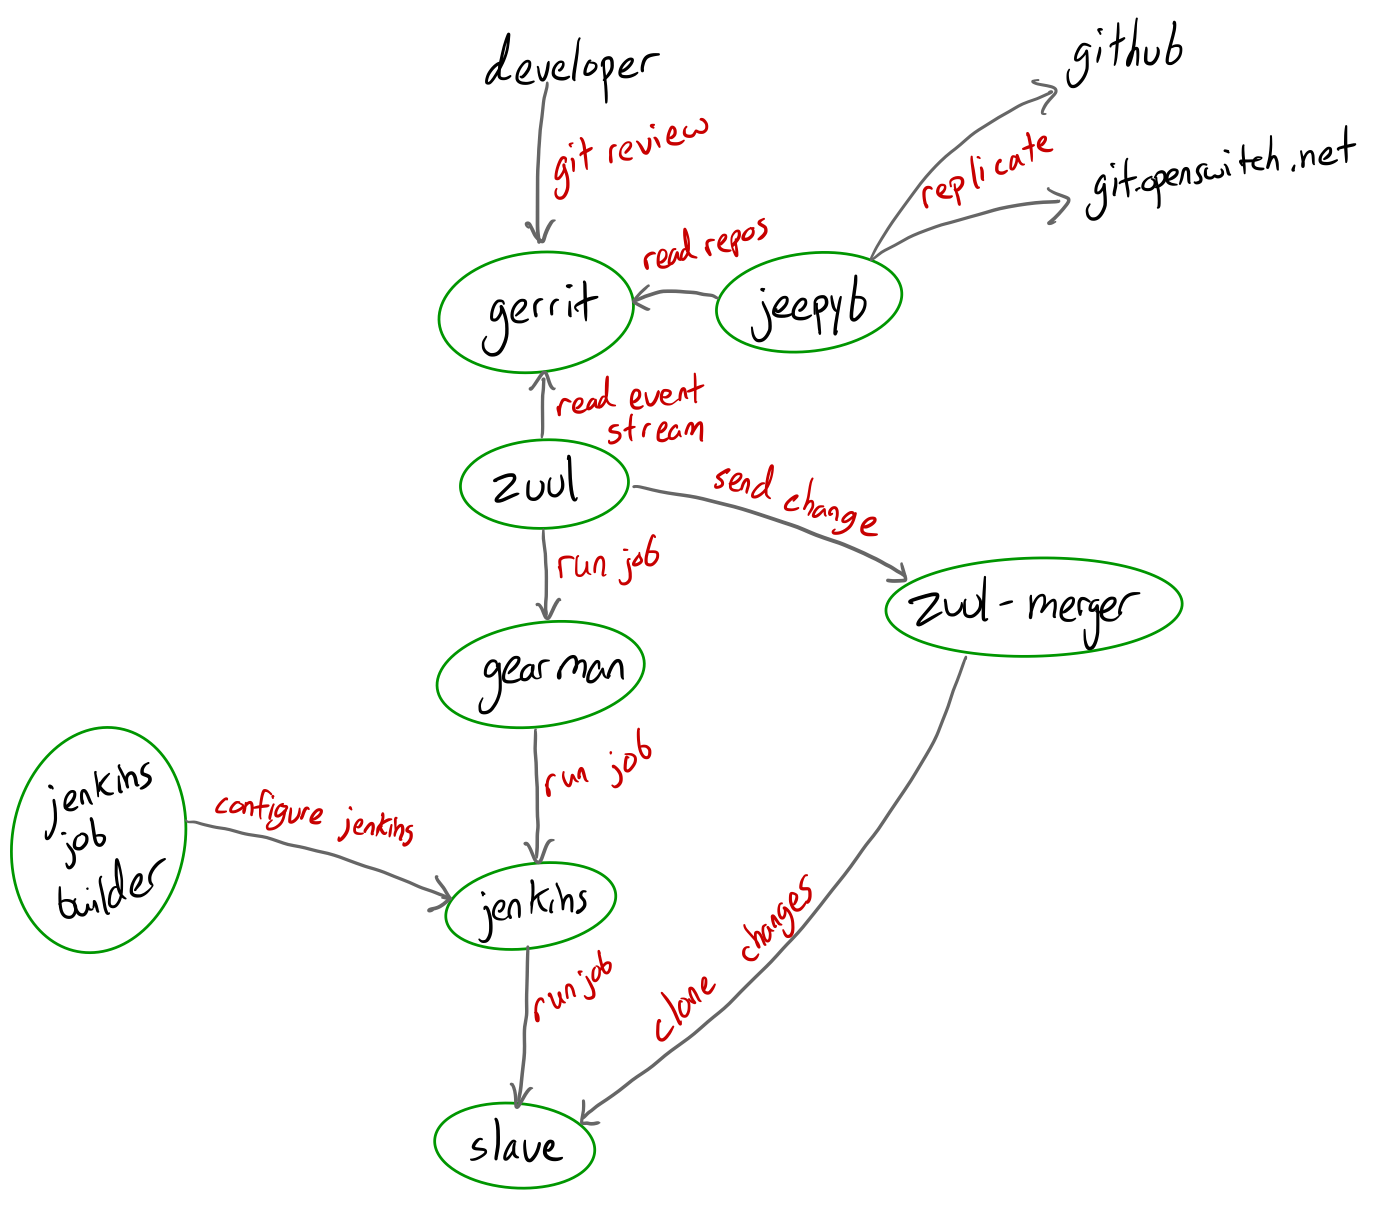 developer
github
git review
replicate
git.openswitch.net
read repos
gerrit
jeepyb
read event
stream
zuul
send change
run job
zuul-merger
gearman
run job
jenkins
job
builder
configure jenkins
jenkins
clone changes
run job
slave